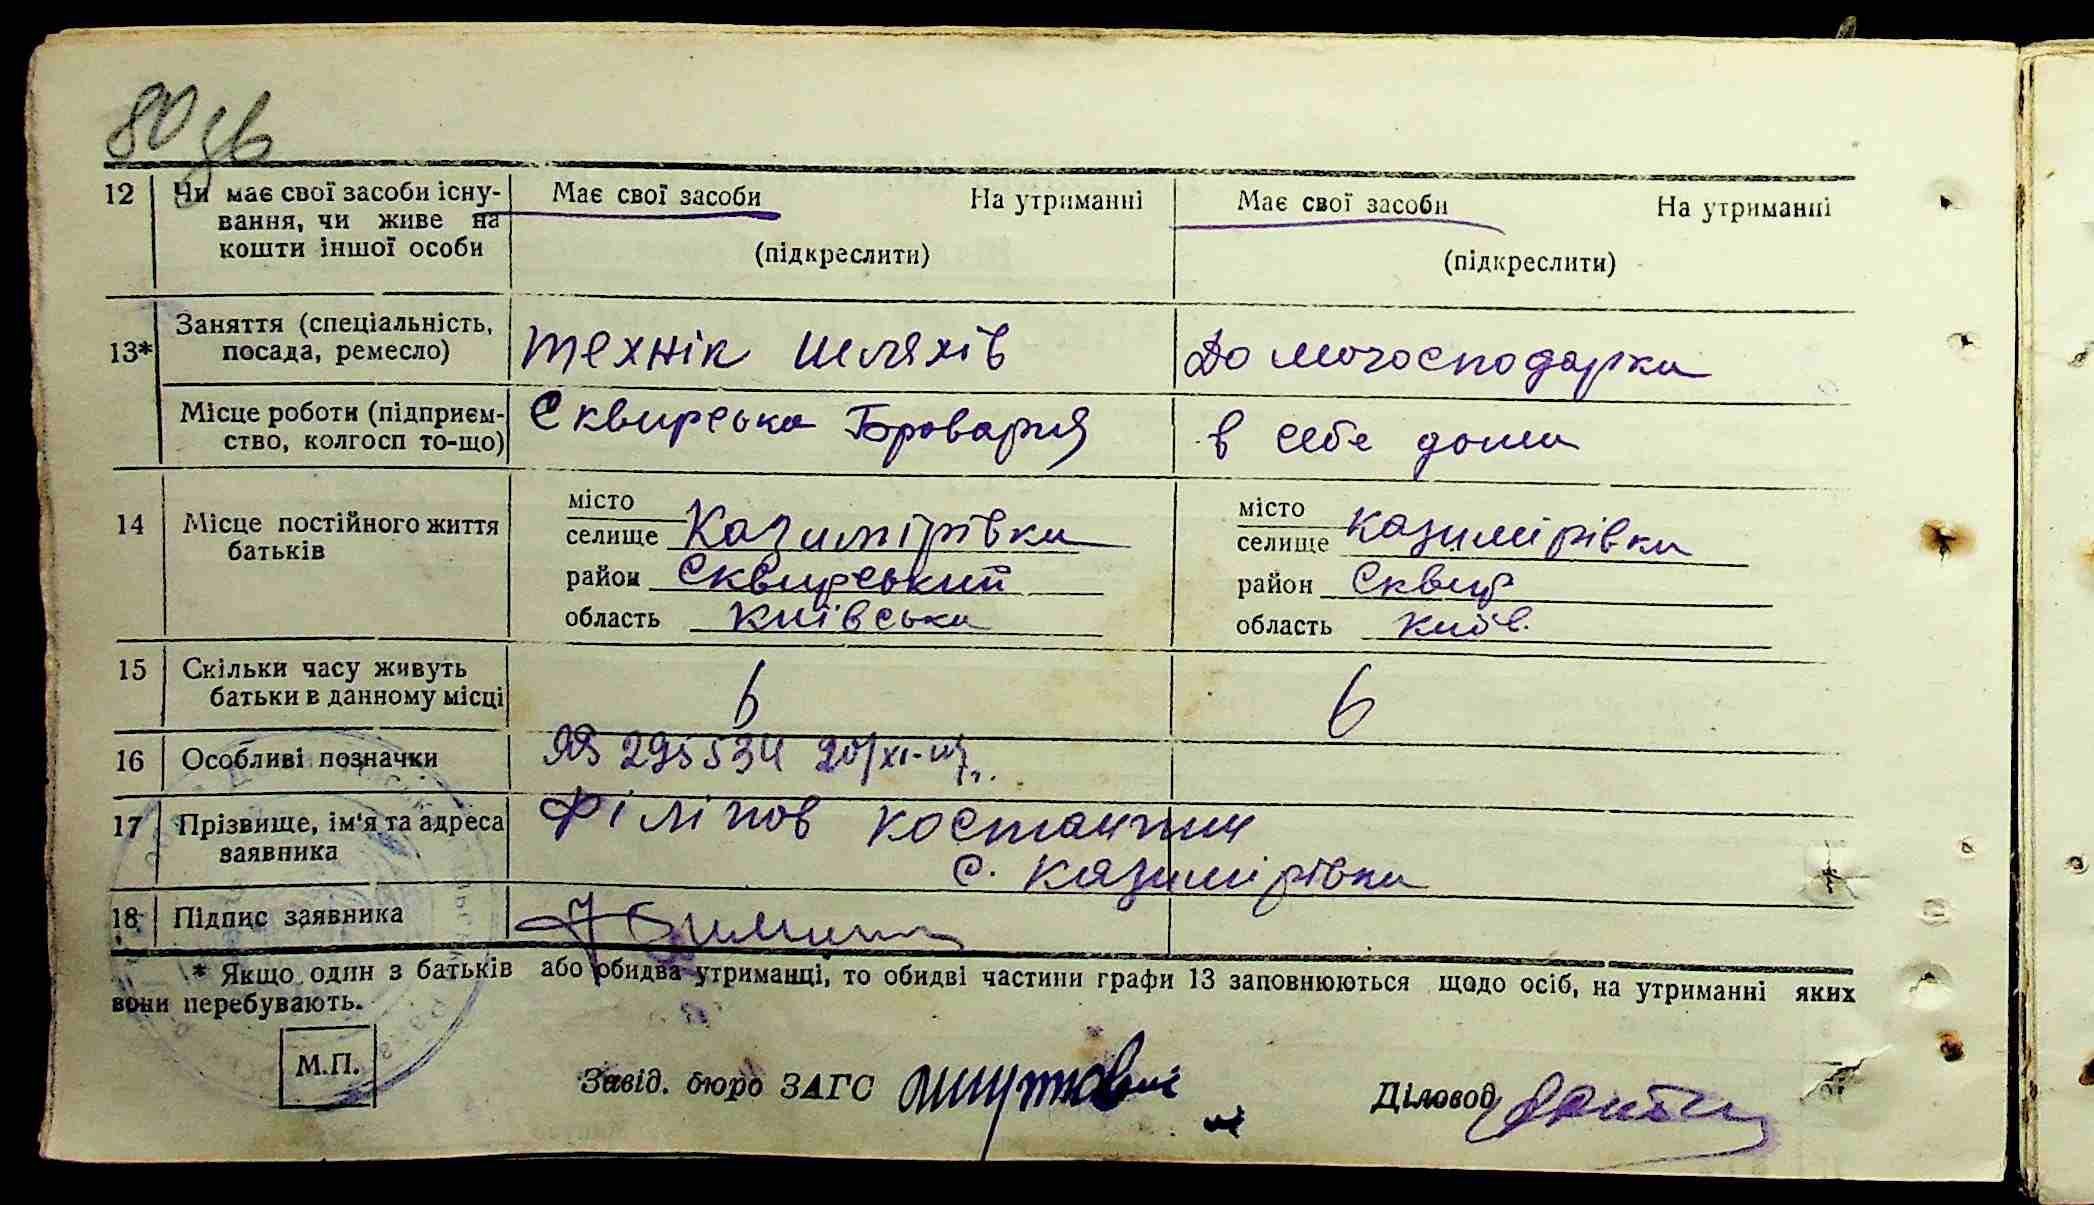 80 зв
12 Чи має свої засоби існу- Має свої засоби На утриманні Має свої засоби На утриманні
вання, чи живе на
кошти іншої особи (підкреслити) (підкреслити)
13* Заняття (спеціальність, посада, ремесло) технік шляхів Домогосподарка
Місце роботи (підприєм- Сквирська Броварня в себе дома
ство, колгосп то-що)
14 Місце постійного життя батьків
місто місто
селище Казимірівка селище Казимірівка
район Сквирський район Сквир
область Київська область Київ.
15 Скільки часу живуть
батьки в данному місці 6 6
16 Особливі позначки ЯБ 295534 20/XI-
17 Прізвище, ім'я та адреса Філіпов Костантин
заявника с. Казимірівка
18 Підпис заявника
* Якщо один з батьків або обидва утриманці, то обидві частини графи 13 заповнюються щодо осіб, на утриманні яких
вони перебувають.
М.П.
Завід. бюро ЗАГС Діловод